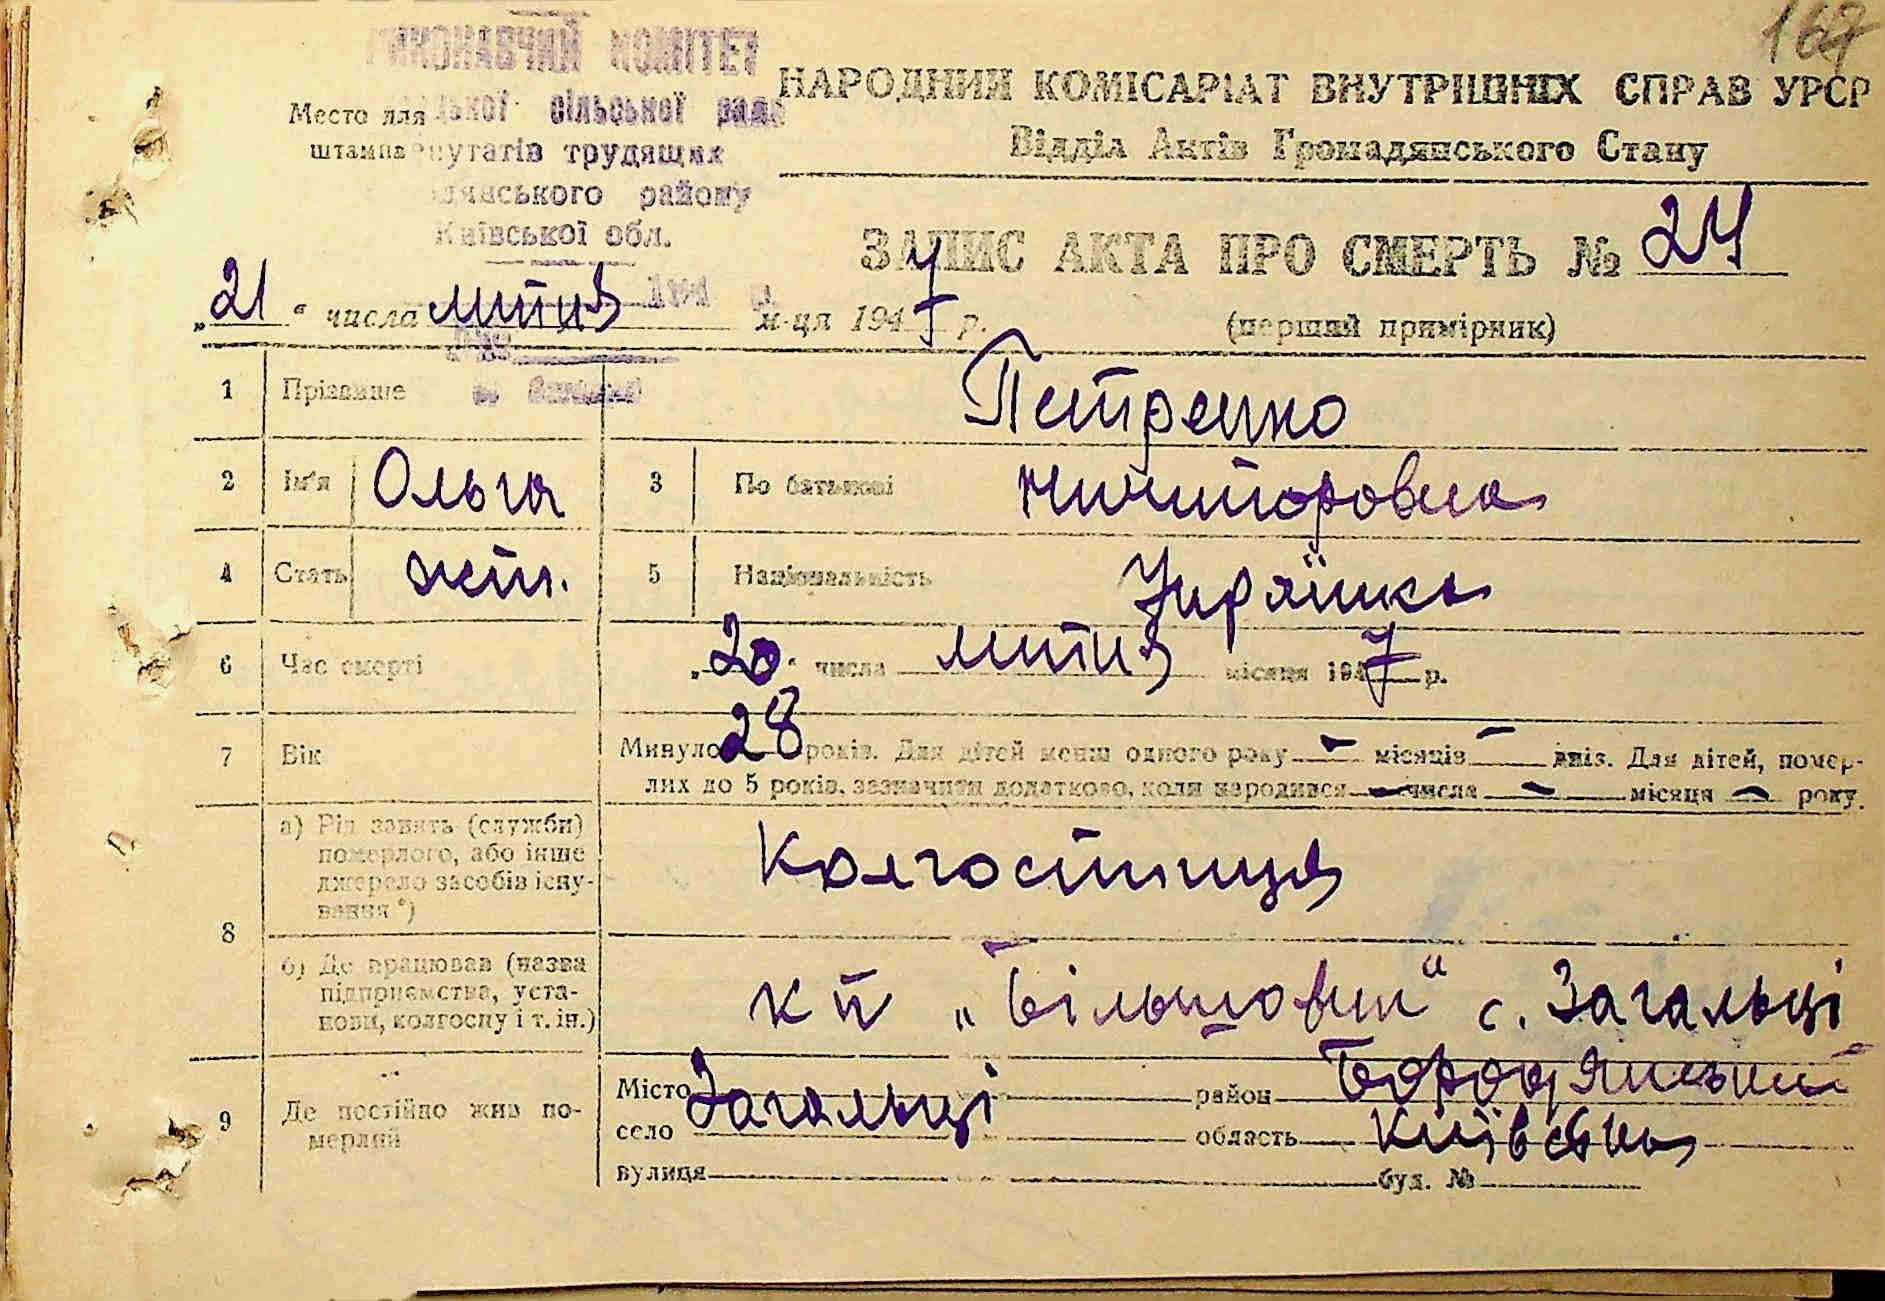 167
ВИКОНАВЧИЙ КОМІТЕТ
сільської ради
депутатів трудящих
району
Київської обл.
Место для
штампа
НАРОДНИЙ КОМІСАРІАТ ВНУТРІШНІХ СПРАВ УРСР
Відділ Актів Громадянського Стану
ЗАПИС АКТА ПРО СМЕРТЬ № 24
„21“ числа липня м-ця 1947 р.
(перший примірник)
1 Прізвище Петренко
2 Ім'я Ольга 3 По батькові Ничипоровна
4 Стать жін. 5 Національність Украінка
6 Час смерті „20“ числа липня місяця 1947 р.
7 Вік Минуло 28 років. Для дітей менш одного року — місяців — днів. Для дітей, помер-
лих до 5 років, зазначити додатково, коли народився — числа — місяця — року.
8 а) Рід занять (служби)
померлого, або інше
джерело засобів існу-
вання *)
Колгоспниця
б) Де працював (назва
підприємства, уста-
нови, колгоспу і т. ін.)
к п „Більшовик“ с. Загальці
9 Де постійно жив по-
мерлий
Місто
село Загальці район Бородянський
область Київська
вулиця буд. №